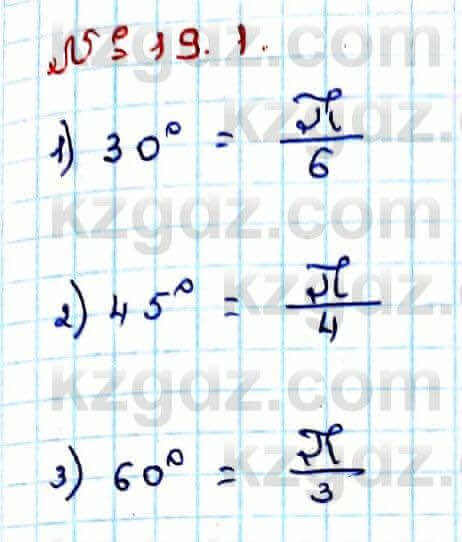 № § 19. 1.
1) 30° = π/6
2) 45° = π/4
3) 60° = π/3
kzgdz.com
kzgdz.com
kzgdz.com
kzgdz.com
kzgdz.com
kzgdz.com